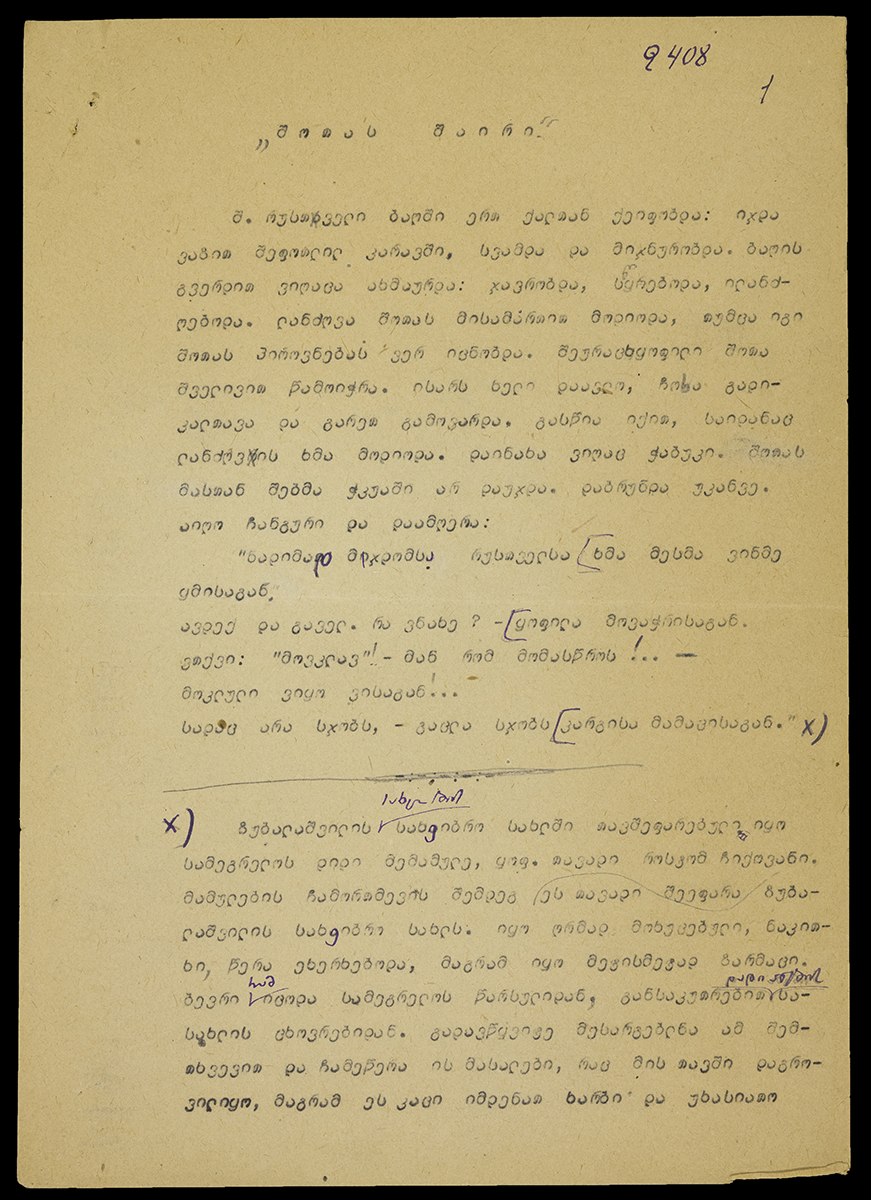 9408
1
„შოთას შაირი“
შ. რუსთველი ბაღში ერთ ქალთან ქეიფობდა: იჯდა
ვაზით შეფოთლილ კარავში, სვამდა და მიჯნურობდა. ბაღის
გვერდით ვიღაცა ახმაურდა: ჯავრობდა, სწყრებოდა, ილანძ-
ღებოდა. ლანძღვა შოთას მისამართით მოდიოდა, თუმცა იგი
შოთას პიროვნებას ვერ იცნობდა. შეურაცხყოფილი შოთა
შველივით წამოიჭრა. ისარს ხელი დაავლო, ჩოხა გადი-
კალთავა და გარეთ გამოვარდა. გასწია იქით, საიდანაც
ლანძღვის ხმა მოდიოდა. დაინახა ვიღაც ჭაბუკი. შოთას
მასთან შებმა ჭკუაში არ დაუჯდა. დაბრუნდა უკანვე.
აიღო ჩანგური და დაამღერა:
"ნადიმად მჯდომსა რუსთველსა [ხმა მესმა ვინმე
ყმისაგან."
ავდექ და გაველ. რა ვნახე ? -[ყოფილა მოვაჭრისაგან.
ვთქვი: "მოვკლავ"!- მან რომ მომასწროს !... —
მოკლული ვიყო ვისაგან!...
სადაც არა სჯობს, - გაცლა სჯობს [კარგისა მამაცისაგან." x)
x) ზუბალაშვილის სახელობის სახვიბრო სახლში თავშეფარებული იყო
სამეგრელოს დიდი მემამულე, ყოფ. თავადი როსტომ ჩიქოვანი.
მამულების ჩამორთმევის შემდეგ ეს თავადი შეეფარა ზუბა-
ლაშვილის სახვიბრო სახლს. იყო ღრმად მოხუცებული, ნაკით-
ხი, წერა ეხერხებოდა, მაგრამ იყო მეტისმეტად ზარმაცი.
ბევრი რამ იცოდა სამეგრელოს წარსულიდან, განსაკუთრებით დადიანების სა-
სახლის ცხოვრებიდან. გადავწყვიტე მესარგებლნა ამ შემ-
თხვევით და ჩამეწერა ის მასალები, რაც მის თავში დაგრო-
ვილიყო, მაგრამ ეს კაცი იმდენათ ხარბი და უხასიათო